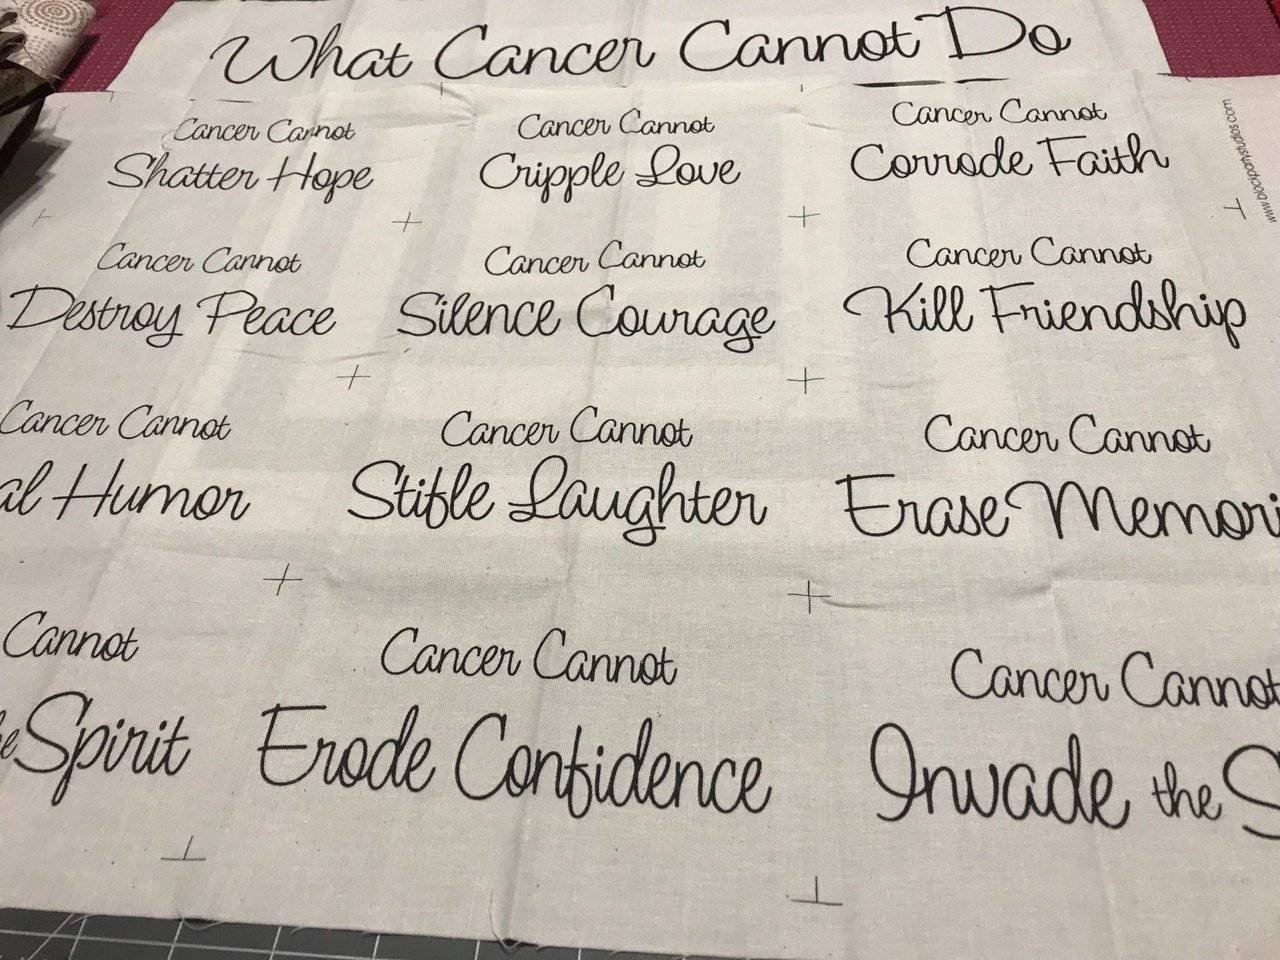 What Cancer Cannot Do
Cancer Cannot
Shatter Hope
Cancer Cannot
Cripple Love
Cancer Cannot
Corrode Faith
www.blockpartystudios.com
Cancer Cannot
Destroy Peace
Cancer Cannot
Silence Courage
Cancer Cannot
Kill Friendship
Cancer Cannot
al Humor
Cancer Cannot
Stifle Laughter
Cancer Cannot
Erase Memori
Cannot
e Spirit
Cancer Cannot
Erode Confidence
Cancer Cannot
Invade the S